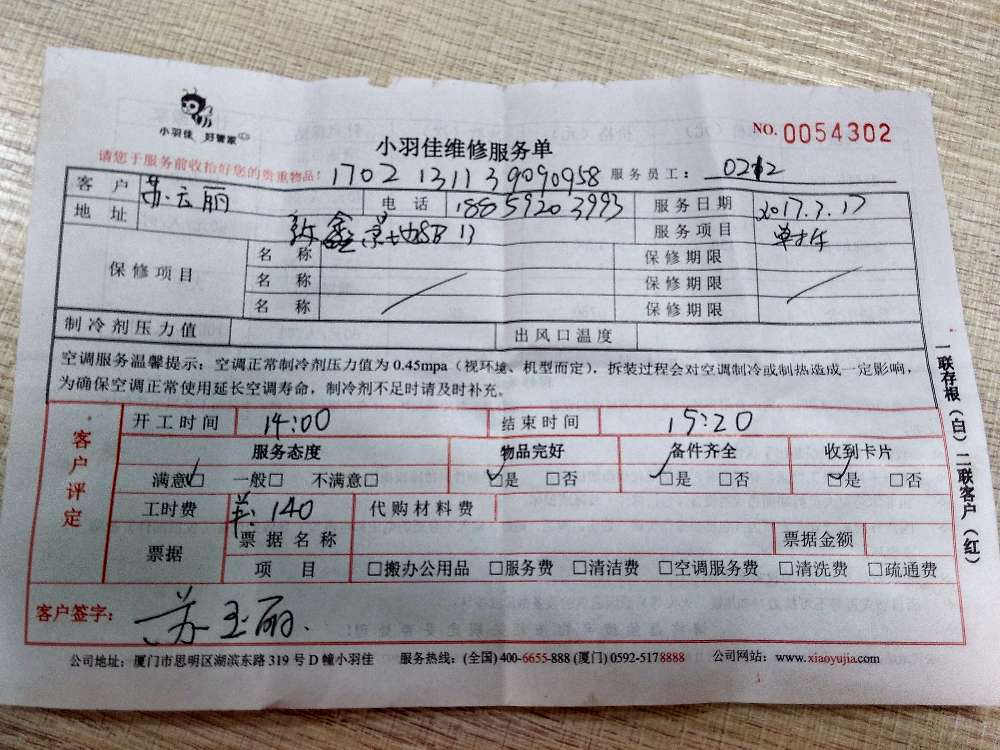 小羽佳 好管家
小羽佳维修服务单 NO. 0054302
请您于服务前收拾好您的贵重物品! 1702 1311 39090958 服务员工:
客户 苏云丽 电话 18859203993 服务日期 2017.3.17
地址 鑫 服务项目
保修项目 名称 保修期限
名称 保修期限
名称 保修期限
制冷剂压力值 出风口温度
空调服务温馨提示:空调正常制冷剂压力值为 0.45mpa(视环境、机型而定),拆装过程会对空调制冷或制热造成一定影响,
为确保空调正常使用延长空调寿命,制冷剂不足时请及时补充。
客户评定
开工时间 14:00 结束时间 15:20
服务态度 物品完好 备件齐全 收到卡片
满意□ 一般□ 不满意□ □是 □否 □是 □否 □是 □否
工时费 140 代购材料费
票据 票据名称 票据金额
项目 □搬办公用品 □服务费 □清洁费 □空调服务费 □清洗费 □疏通费
客户签字: 苏玉丽.
公司地址:厦门市思明区湖滨东路 319 号 D 幢小羽佳 服务热线:(全国) 400-6655-888 (厦门) 0592-5178888 公司网站:www.xiaoyujia.com
一联存根(白) 二联客户(红)